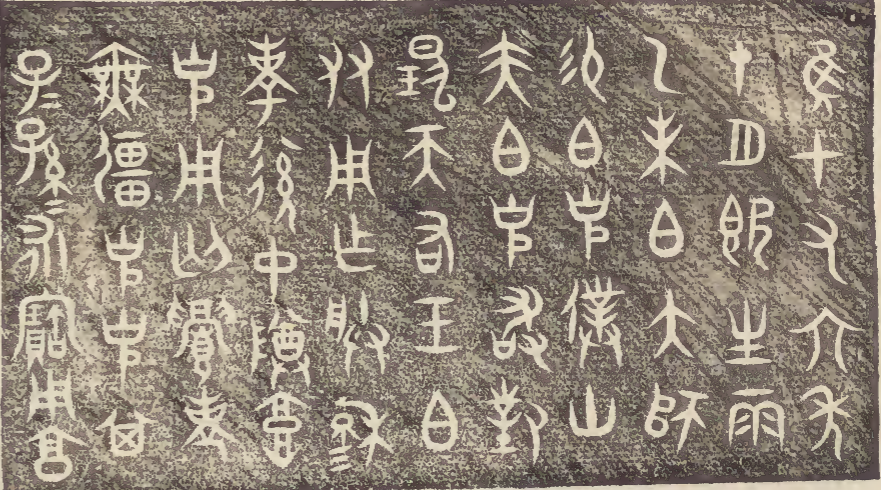 隹十又六年
七月既生雨
乙未白大師
易白克僕卅
夫白克敢對
揚天右王白
友用乍朕穆
考後中尊𩫖
克用匄眉老
無疆克克其
子=孫=永寶用享